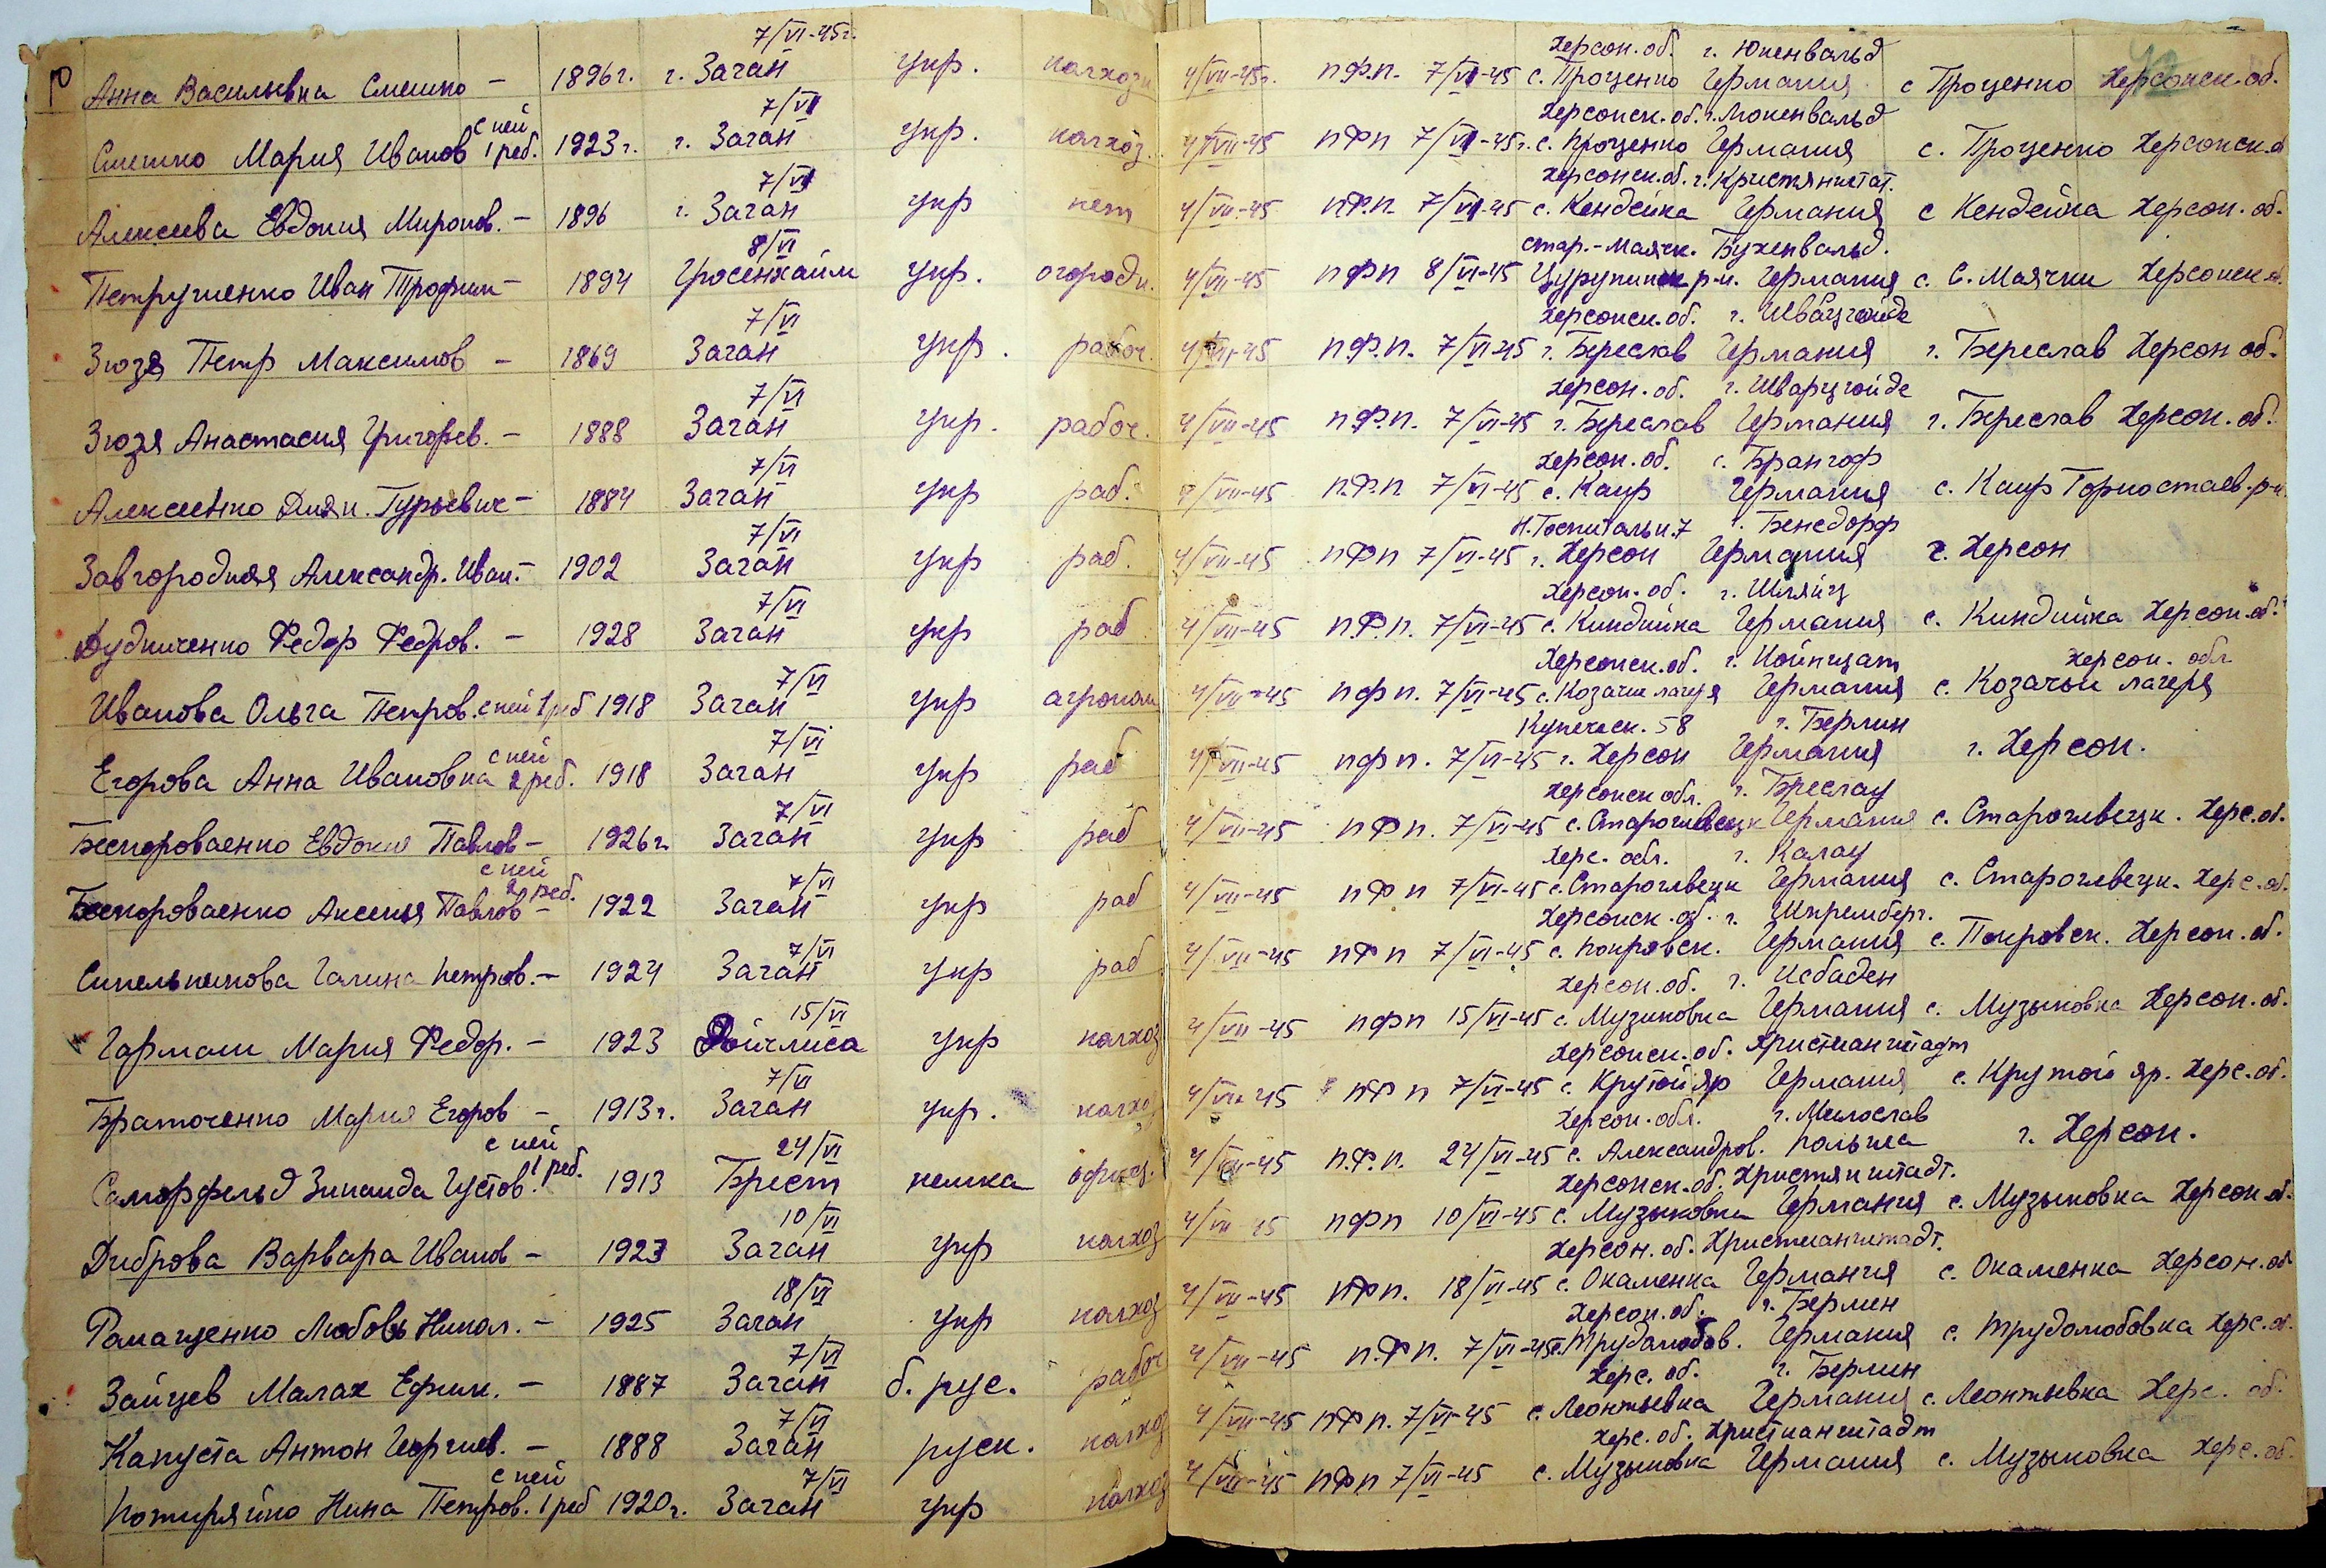 7/VI-45г. Херсон. об. г. Юкенвальд
Анна Васильевна Смешко – 1896г. г. Заган укр. колхозн 4/VII-45г. п.ф.п. 7/VI-45 с. Проценко Германия с Проценко Херсонск. об.
с ней 7/VI Херсонск. об. г. Люкенвальд
Смешко Мария Иванов 1 реб. 1923г. г. Заган укр. колхоз. 4/VII-45 пфп 7/VI-45г. с. Проценко Германия с. Проценко Херсонск. о
7/VI Херсонск. об. г. Кристянштат.
Алексеева Евдокия Миронов. – 1896 г. Заган укр нет 4/VII-45 п.ф.п. 7/VI-45 с. Кендейка Германия с Кендейка Херсон. об.
8/VI стар.-Маячк. Бухенвальд.
Петрушенко Иван Трофим – 1894 Гросенхайм укр. огородн. 4/VII-45 пфп 8/VI-45 Цурупинск р-н. Германия с. С. Маячки Херсонск о.
7/VI Херсонск. об. г. Шварцгайде
Зюзя Петр Максимов – 1869 Заган укр. рабоч. 4/VII-45 п.ф.п. 7/VI-45 г. Береслав Германия г. Береслав Херсон об.
7/VI Херсон. об. г. Шварцгойде
Зюзя Анастасия Григорьев. – 1888 Заган укр. рабоч. 4/VII-45 п.ф.п. 7/VI-45 г. Береслав Германия г. Береслав Херсон. об.
7/VI Херсон. об. с. Брангоф
Алексеенко Дмян. Гурьевич – 1884 Заган укр раб. 4/VII-45 п.ф.п 7/VI-45 с. Каир Германия с. Каир Горностаев. р-н.
7/VI Н. Госпитальн. 7 г. Бенсдорф
Завгородняя Александр. Иван. – 1902 Заган укр раб. 4/VII-45 пфп 7/VI-45 г. Херсон Германия г. Херсон
7/VI Херсон. об. г. Шляйц
Дудниченко Федор Федров. – 1928 Заган укр раб 4/VII-45 п.ф.п. 7/VI-45 с. Киндийка Германия с. Киндийка Херсон. об.
7/VI Херсонск. об. г. Койпцат Херсон. обл
Иванова Ольга Петров. с ней 1 реб 1918 Заган укр агроном 4/VII-45 пфп. 7/VI-45 с. Козачие лагеря Германия с. Козачьи лагеря
с ней 7/VI Купеческ. 58 г. Берлин
Егорова Анна Ивановна 2 реб. 1918 Заган укр раб 4/VII-45 пфп. 7/VI-45 г. Херсон Германия г. Херсон.
7/VI Херсонск обл. г. Бреслау
Бескороваенко Евдокия Павлов – 1926г. Заган укр раб 4/VII-45 пфп. 7/VI-45 с. Старошвецк Германия с. Старошвецк. Херс. об.
с ней 7/VI Херс. обл. г. Калау
Бескороваенко Аксенья Павлов – 2 реб. 1922 Заган укр раб 4/VII-45 пфп 7/VI-45 с. Старошвецк Германия с. Старошвецк. Херс. об.
7/VI Херсонск. об. г. Шпремберг.
Синельникова Галина Петров. – 1924 Заган укр раб 4/VII-45 пфп 7/VI-45 с. Покровск. Германия с. Покровск. Херсон. об.
15/VI Херсон. об. г. Исбаден
Гармаш Мария Федор. – 1923 укр колхоз 4/VII-45 пфп 15/VI-45 с. Музыковка Германия с. Музыковка Херсон. об.
7/VI Херсонск. об. Христианштадт
Браточенко Мария Егоров – 1913г. Заган укр. колхоз 4/VII-45 пфп 7/VI-45 с. Крутой яр Германия с. Крутой яр. Херс. об.
с ней 24/VI Херсон. обл. г. Милослав
Саморфельд Зинаида Густов. 1 реб. 1913 Брест немка офиц. 4/VII-45 п.ф.п. 24/VI-45 с. Александров. Польша г. Херсон.
10/VI Херсонск. об. Христянштадт.
Диброва Варвара Иванов – 1923 Заган укр колхоз 4/VII-45 пфп 10/VI-45 с. Музыковка Германия с. Музыковка Херсон. об.
18/VI Херсон. об. Христианштадт.
Ромащенко Любовь Никол. – 1925 Заган укр колхоз 4/VII-45 пфп. 18/VI-45 с. Окаменка Германия с. Окаменка Херсон. об
7/VI Херсон. об. г. Берлин
Зайцев Малах Ефим. – 1887 Заган б. рус. рабоч 4/VII-45 п.ф.п. 7/VI-45 с. Трудолюбов. Германия с. Трудолюбовка Херс. об.
7/VI Херс. об. г. Берлин
Капуста Антон Георгиев. – 1888 Заган руск. колхоз 4/VII-45 пфп. 7/VI-45 с. Леонтьевка Германия с. Леонтьевка Херс. об.
с ней 7/VI Херс. об. Христианштадт
Котиряйко Нина Петров. 1 реб 1920г. Заган укр колхоз 4/VII-45 пфп 7/VI-45 с. Музыковка Германия с. Музыковка Херс. об.